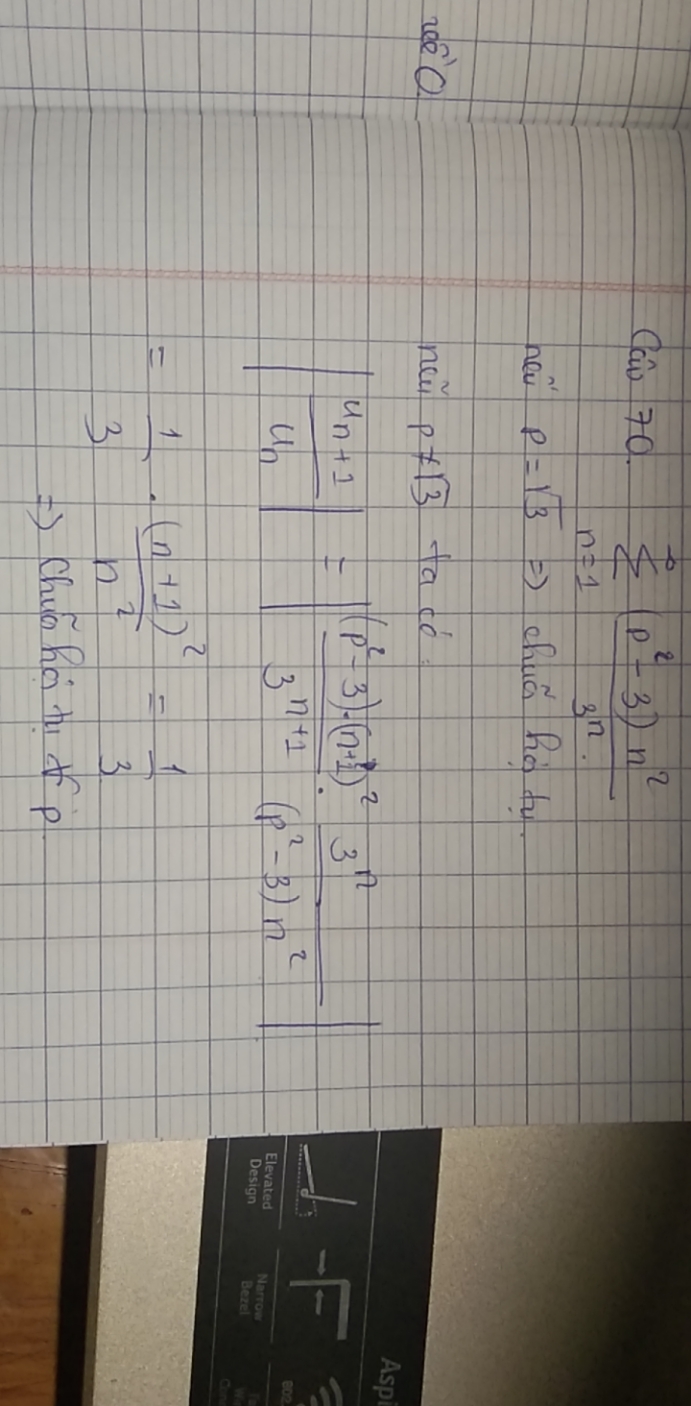 Câu 70. ∞∑n=1 (p² - 3)n² / 3ⁿ.
nếu p = √3 => chuỗi hội tụ.
nếu p ≠ √3 ta có:
|uₙ₊₁ / uₙ| = |(p² - 3).(n+1)² / 3ⁿ⁺¹ . 3ⁿ / (p² - 3)n²|
= 1/3 . (n+1)² / n² = 1/3
=> chuỗi hội tụ ∀ p
Aspi
Elevated Design
Narrow Bezel
802.